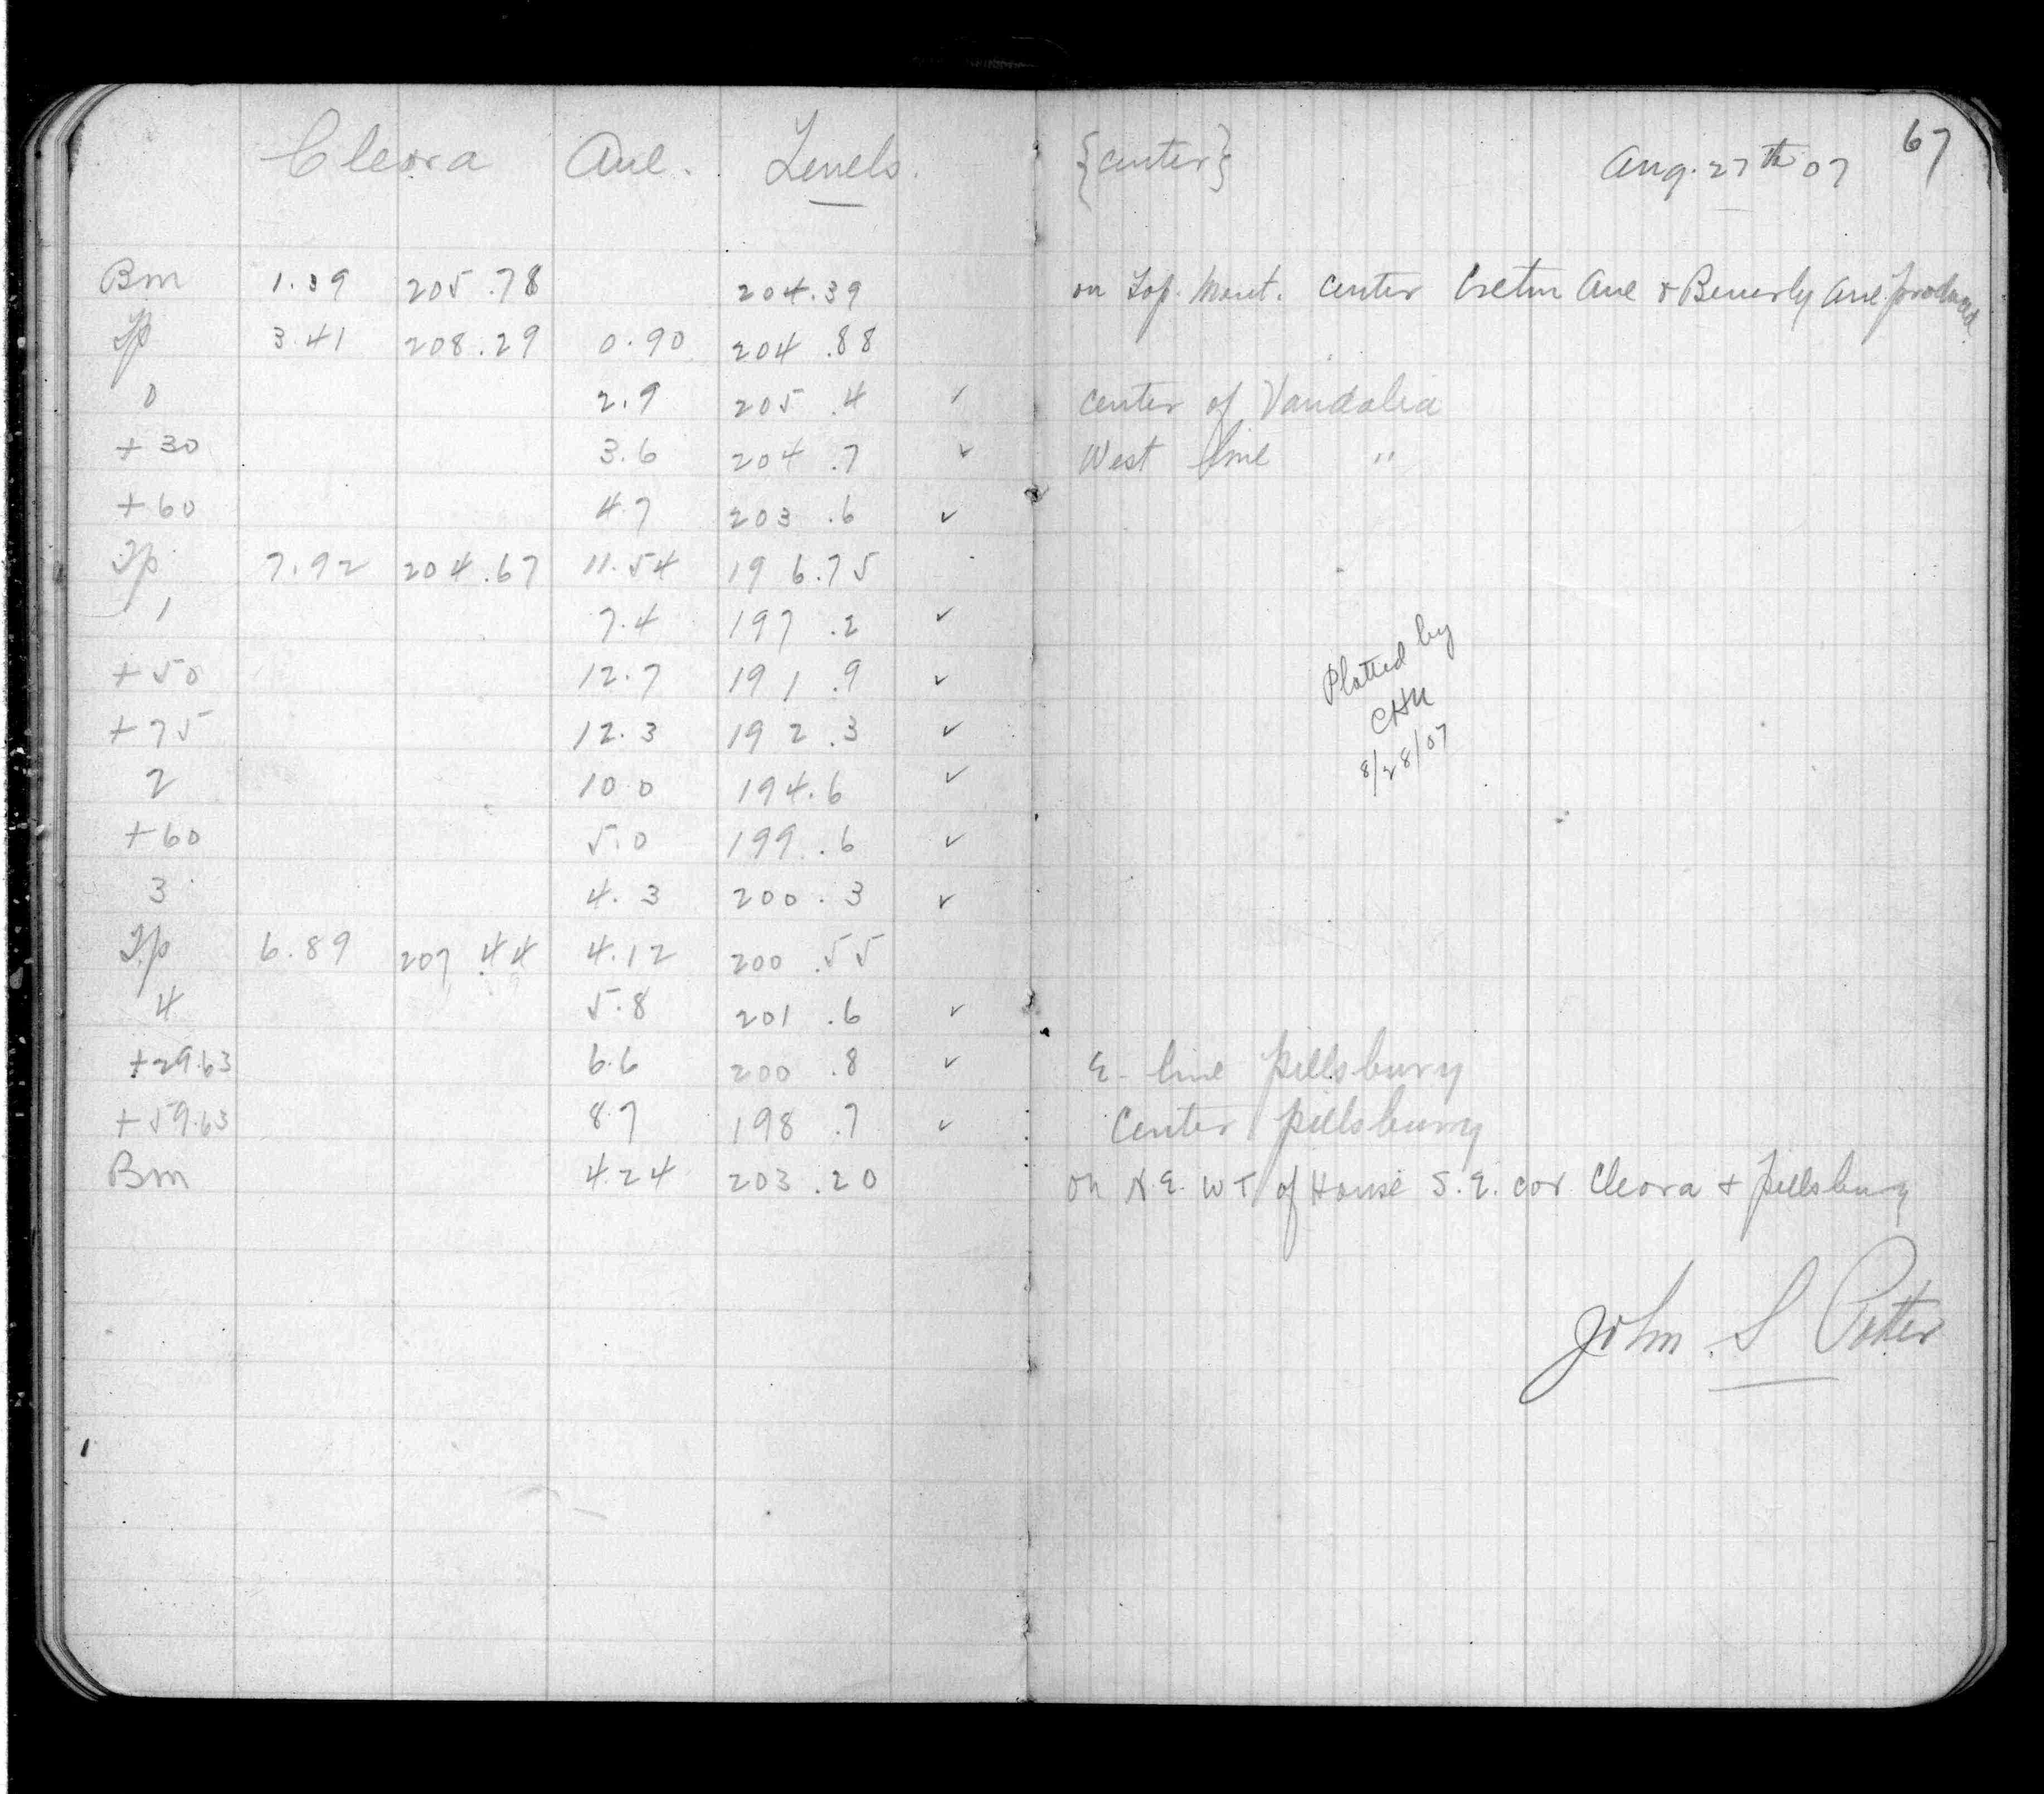 67
Cleora Ave. Levels. {center} Aug. 27th 07
Bm 1.39 205.78 204.39 on Top. Mont. center Cretin Ave & Beverly Ave produced
Tp 3.41 208.29 0.90 204.88
0 2.9 205.4 ✓ center of Vandalia
+30 3.6 204.7 ✓ West line "
+60 4 7 203.6 ✓
Tp 7.92 204.67 11.54 196.75
1 7.4 197.2 ✓
+50 12.7 191.9 ✓
+75 12.3 192.3 ✓
2 10 0 194.6 ✓
+60 5.0 199.6 ✓
3 4.3 200.3 ✓
Plotted by
CHU
8/28/07
Tp 6.89 207.44 4.12 200.55
4 5.8 201.6 ✓
+29.63 6.6 200.8 ✓ E. line Pillsbury
+59.63 8 7 198.7 ✓ Center Pillsbury
Bm 4.24 203.20 on N.E. W T of House S.E. cor Cleora & Pillsbury
John S Potter